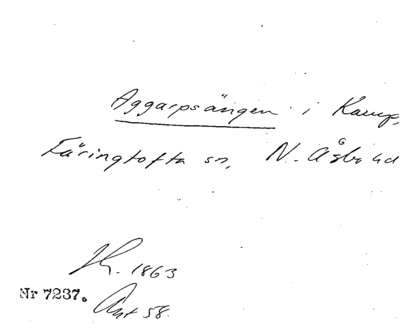 Aggarpsängen i Kamp,
Färingtofta sn, N. Åsbo hd
H. 1863
Nr 7237.
Ant 58.